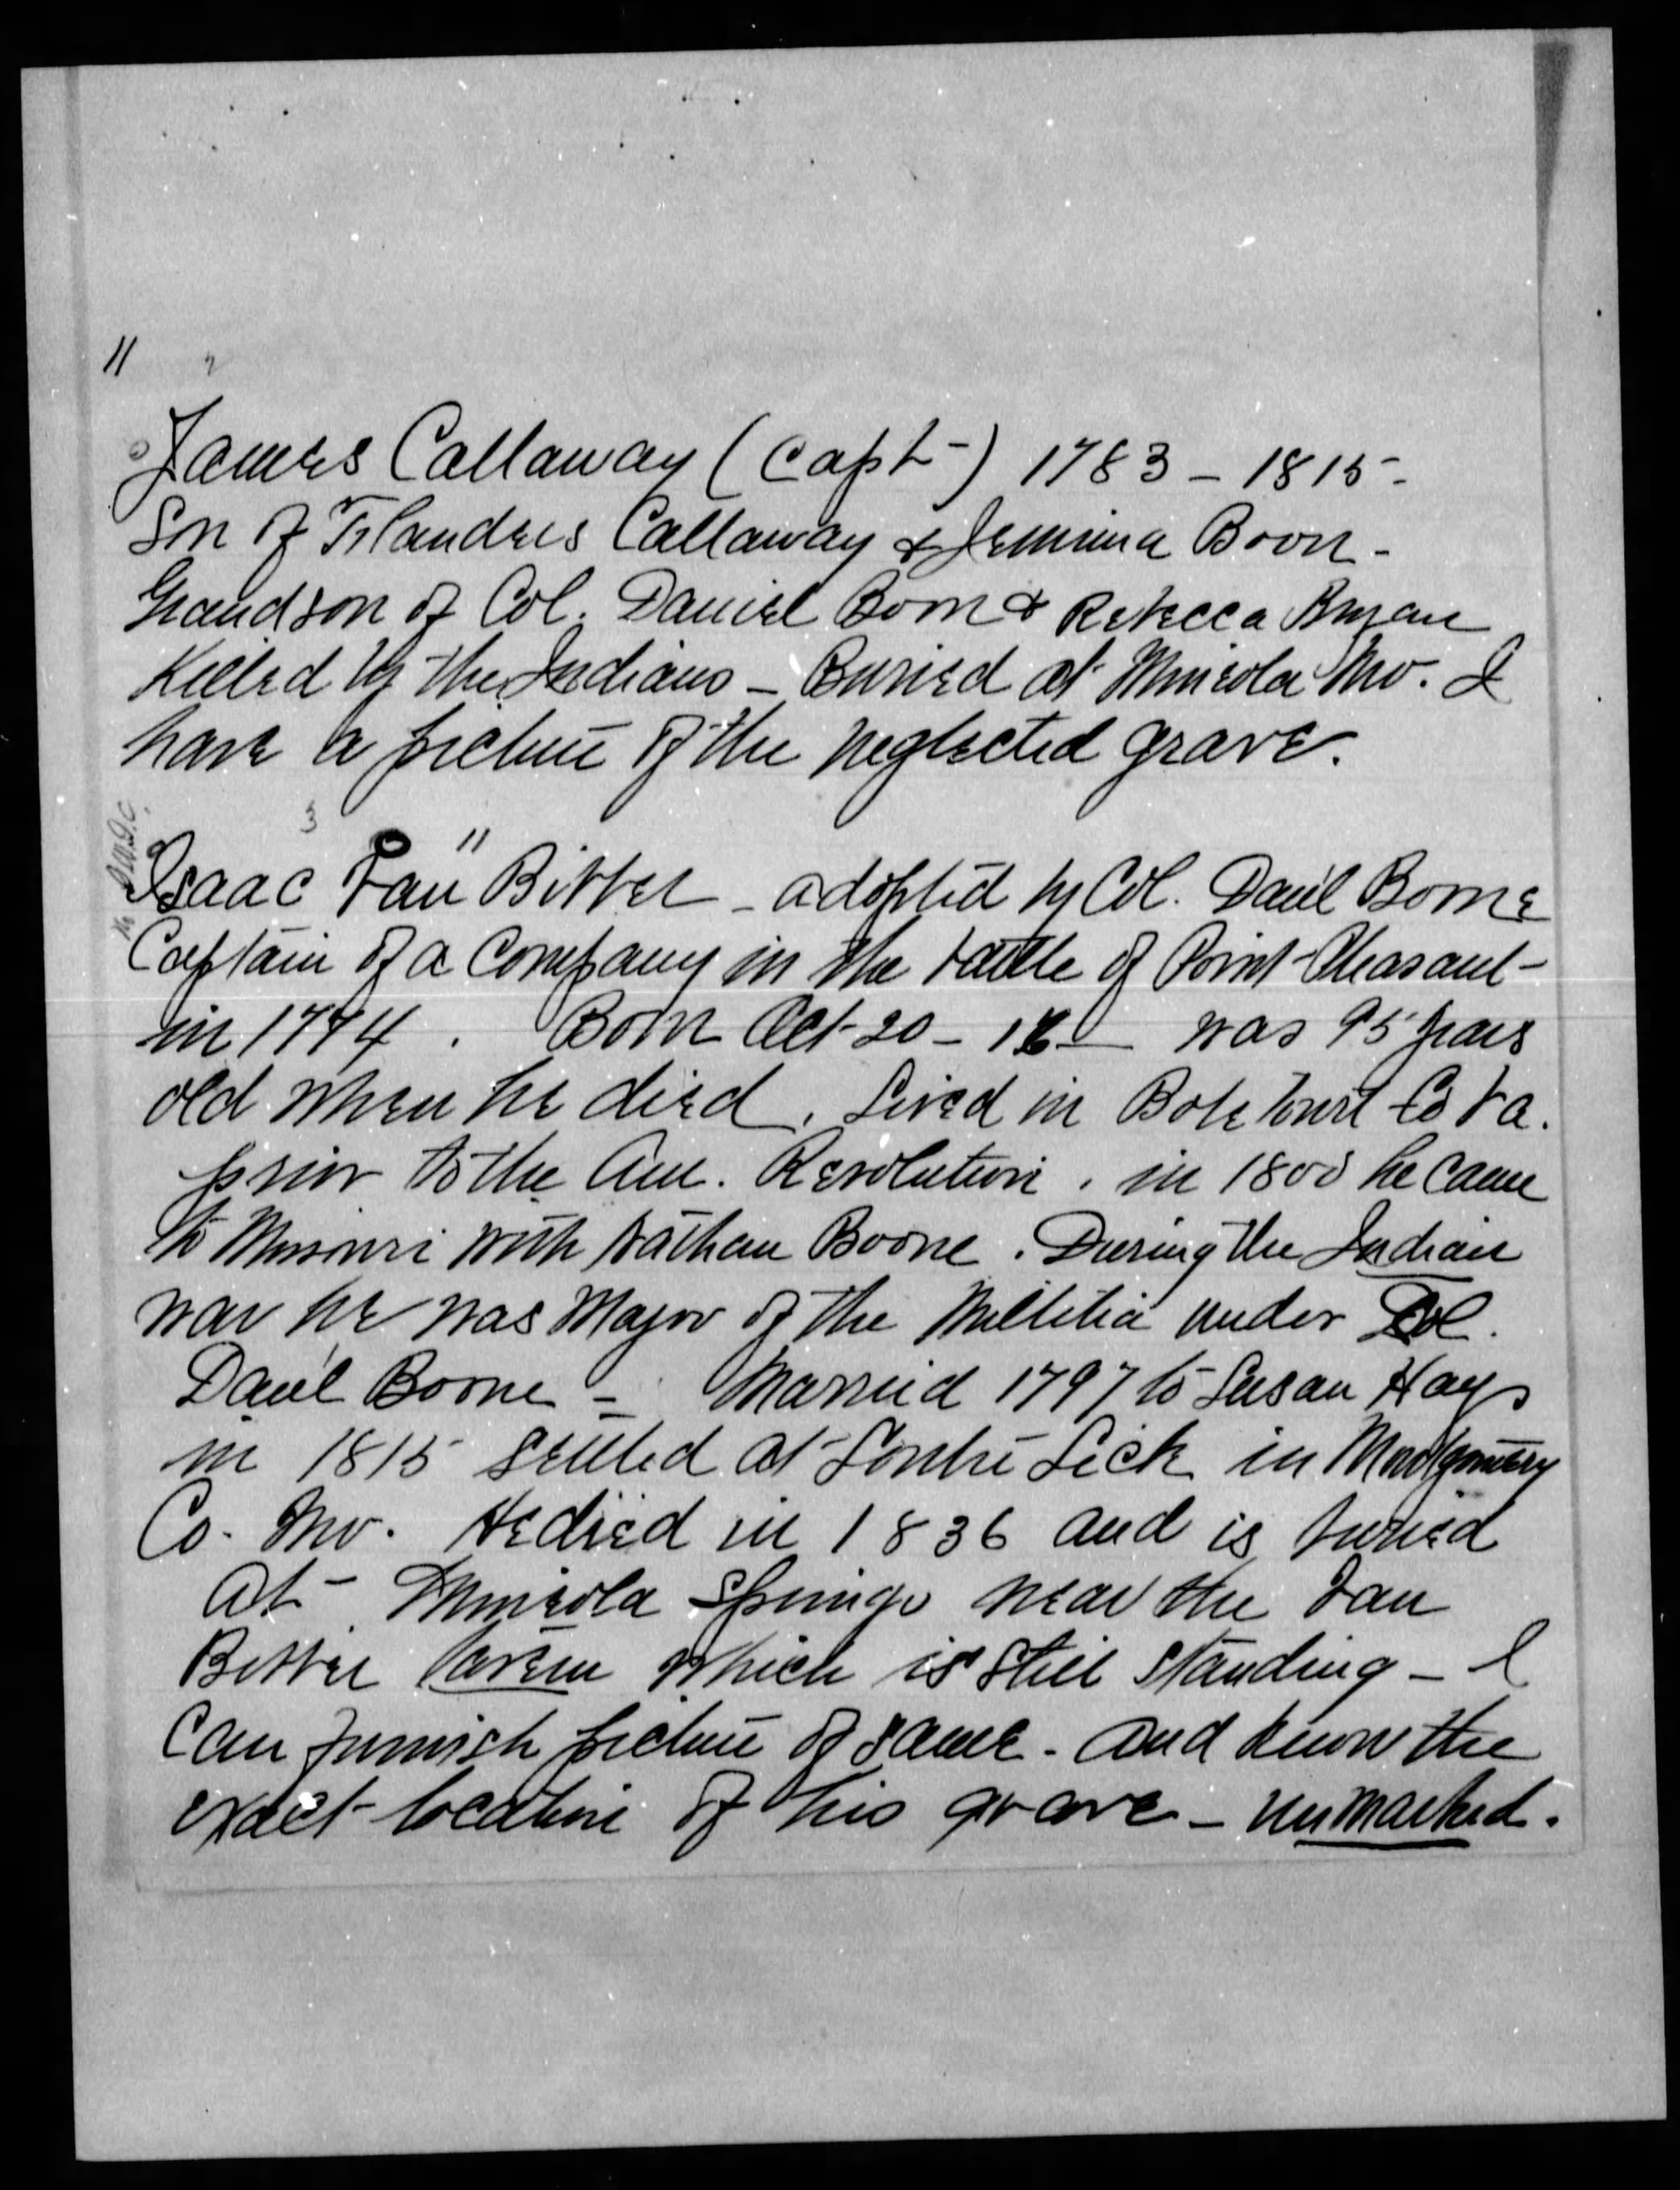 11
James Callaway (Capt-) 1783 - 1815-
Son of Flanders Callaway & Jemima Boon -
Grandson of Col. Daniel Boon & Rebecca Bryan
Killed by the Indians - Buried at Mineola Mo. I
have a picture of the neglected grave.
3 "
Isaac Van Bibber - adopted by Col. Dan'l Boone
Captain of a Company in the battle of Point Pleasant -
in 1774. Born Oct 20 - 1 was 95 years
old when he died. Lived in Botetourt Co Va.
prior to the Am. Revolution. in 1800 he came
to Missouri with Nathan Boone. During the Indian
war he was Major of the Millitia under Col.
Dan'l Boone - Married 1797 to Susan Hays
in 1815 settled at Loutre Lick in Montgomery
Co. Mo. He died in 1836 and is buried
at - Mineola Springs near the Van
Bibber tavern which is still standing - I
can furnish picture of same - and know the
exact location of his grave - unmarked.